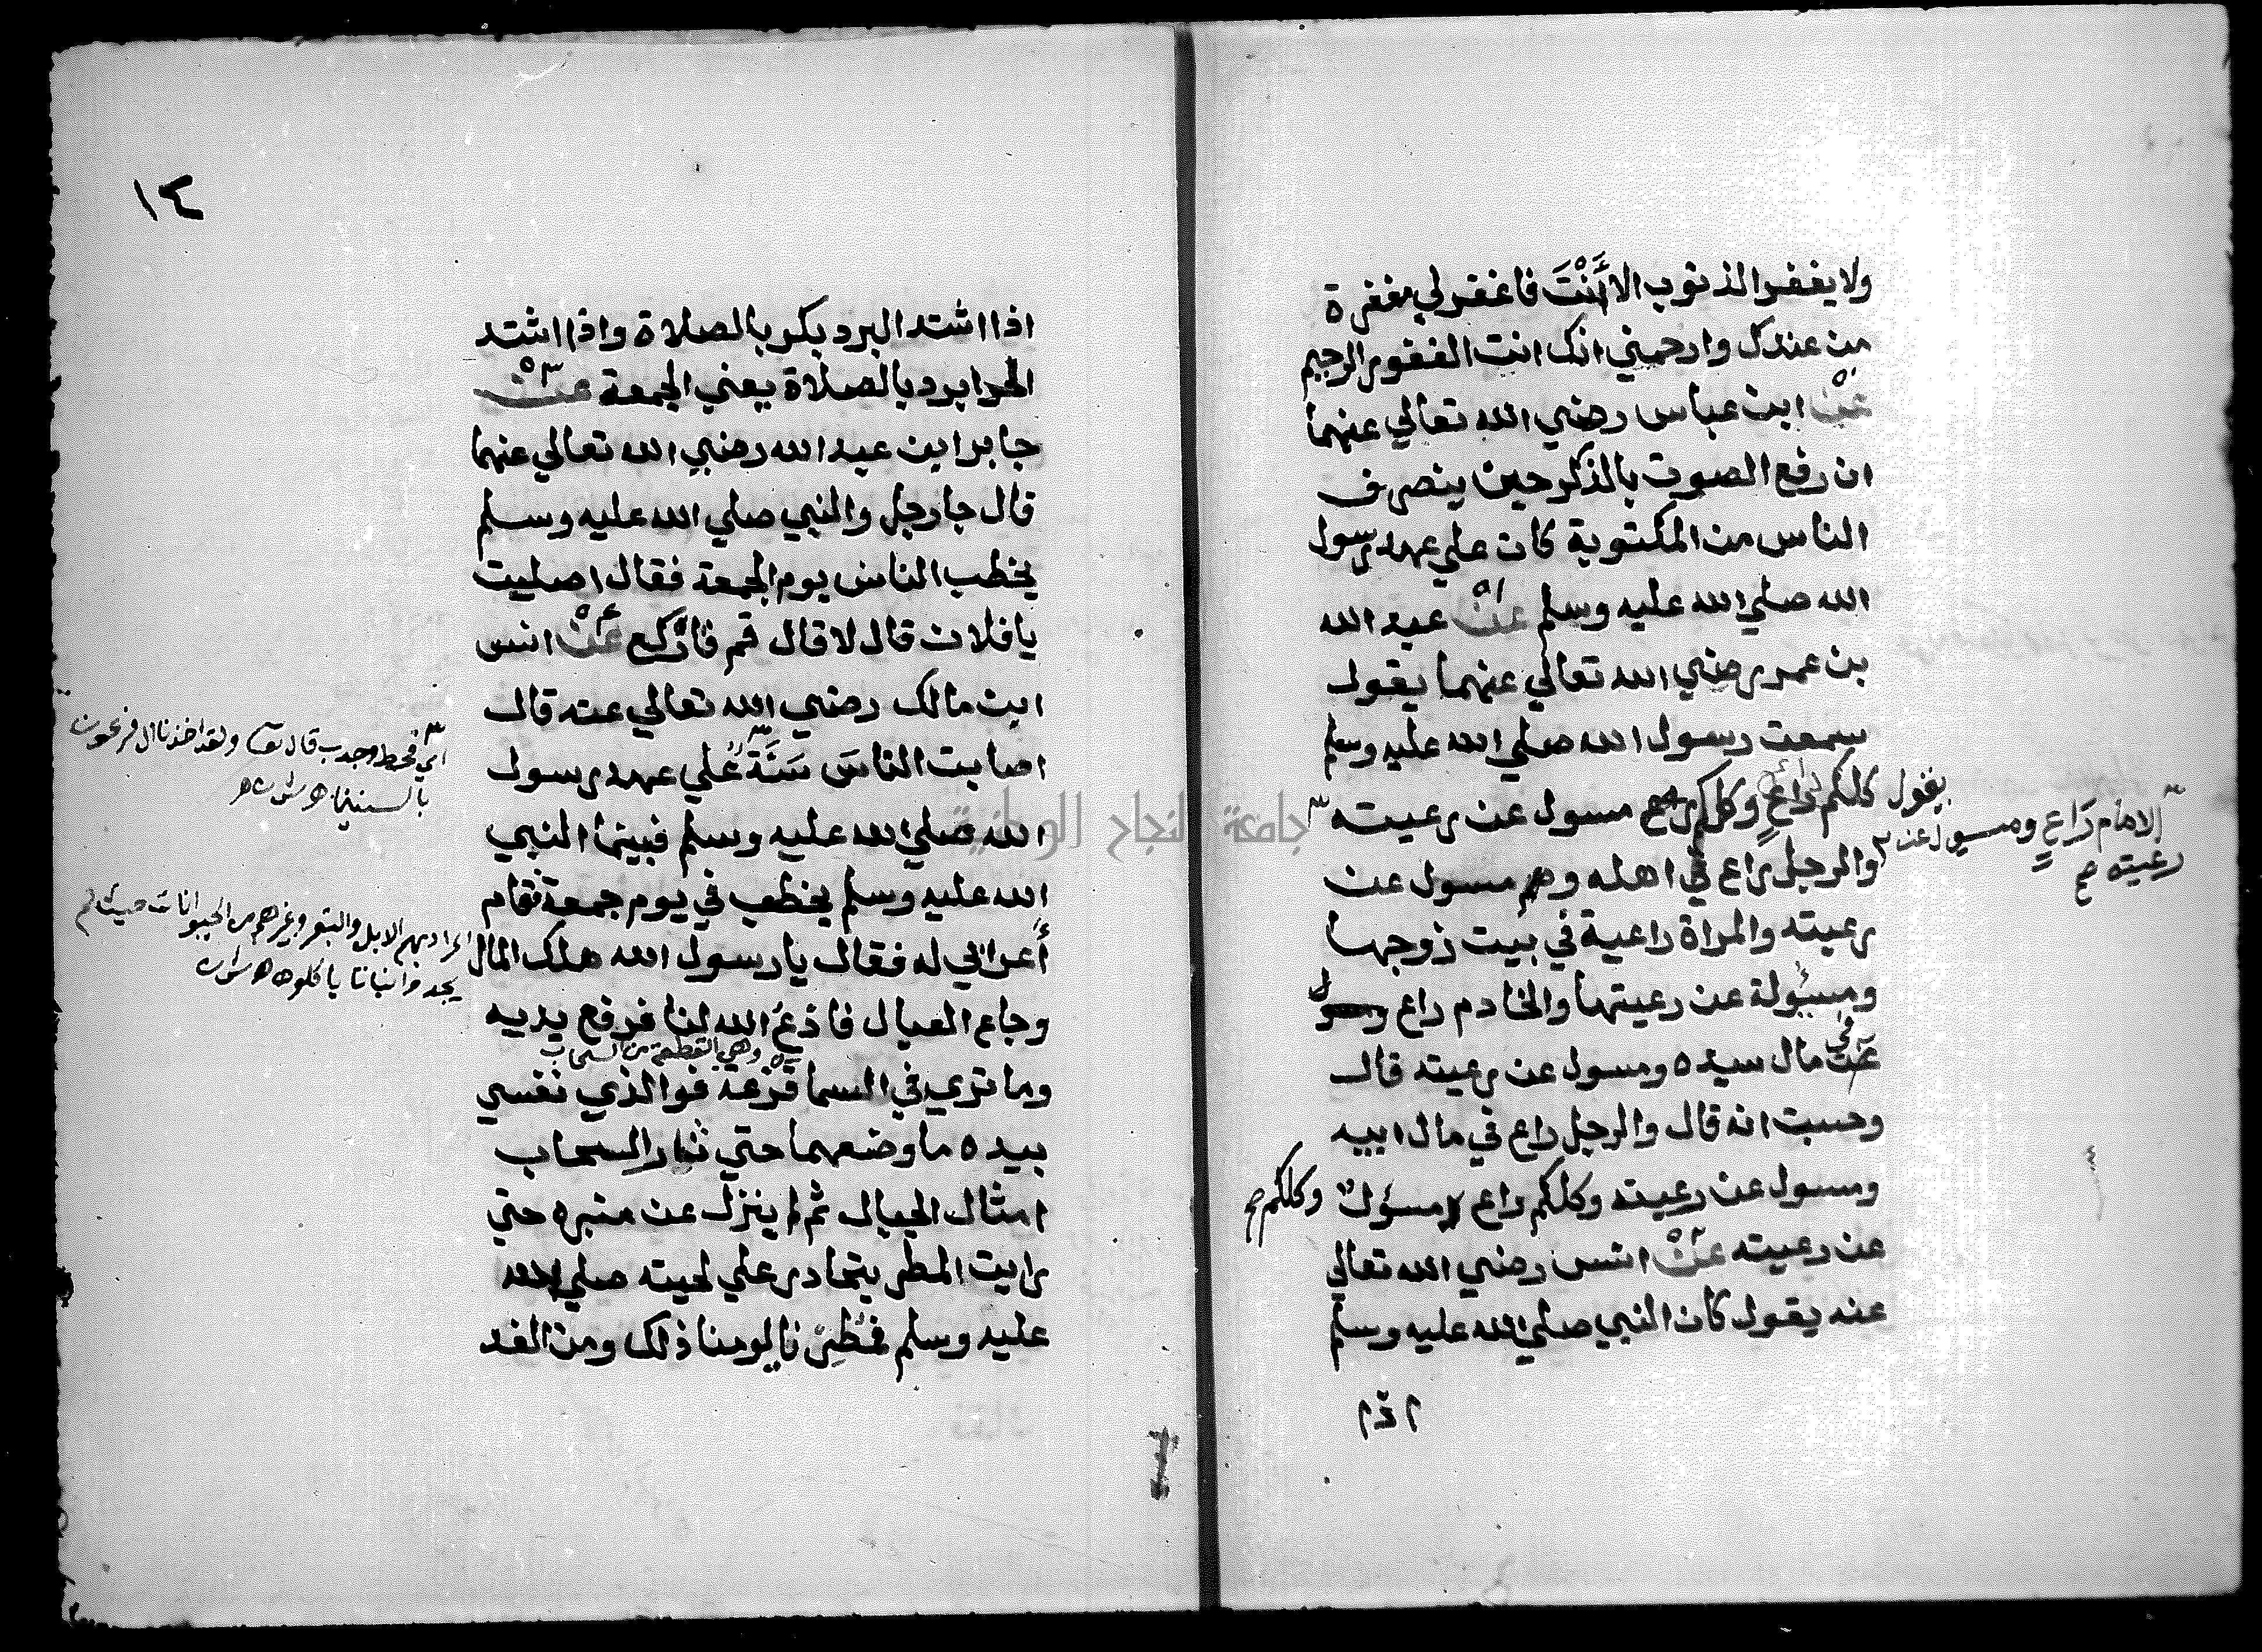 ولا يغفر الذنوب الا أَنْتَ فاغفرلي مغفرة
من عندك وارحمني انك انت الغفور الرحيم
عَنْ ابن عباس رضي الله تعالي عنهما
ان رفع الصوت بالذكر حين ينصرف
الناس من المكتوبة كان علي عهد رسول
الله صلي الله عليه وسلم عَنْ عبد الله
بن عمر رضي الله تعالي عنهما يقول
سمعت رسول الله صلي الله عليه وسلم
يقول كلكم راعٍ وكلكم مسول عن رعيته
الامام رَاعٍ ومسيول عن
رعيته صح
والرجل راع في اهله وهو مسول عن
رعيته والمراة راعية في بيت زوجها
ومسئولة عن رعيتها والخادم راع
في مال سيده ومسول عن رعيته قال
وحسبت انه قال والرجل راع في مال ابيه
ومسول عن رعيته وكلكم راع مسؤل وكلكم صح
عن رعيته عَنْ انس رضي الله تعالي
عنه يقول كان النبي صلي الله عليه وسلم
اذا
١٤
اذا اشتد البرد بكر بالصلاة واذا اشتد
الحر ابرد بالصلاة يعني الجمعة عَنْ
جابر ابن عبد الله رضي الله تعالي عنهما
قال جا رجل والنبي صلي الله عليه وسلم
يخطب الناس يوم الجمعة فقال اصليت
يا فلان قال لا قال قم فاركع عَنْ انس
ابن مالك رضي الله تعالي عنه قال
اصابت الناسَ سَنَةٌ علي عهد رسول
اي قحط وجدب قال تعا ولقد اخذنا ال فرعون
بالسنين
الله صلي الله عليه وسلم فبينما النبي
الله عليه وسلم يخطب في يوم جمعة فقام
أعرابي له فقال يا رسول الله هلك المال
المراد بهم الابل والبقر وغيرهم من الحيوانات حيث لم
يجدوا نباتا ياكلوه
وجاع العيال فادعُ الله لنا فرفع يديه
وهي القطعة من السحاب
وما نري في السما قزعة فوالذي نفسي
بيده ما وضعهما حتي ثار السحاب
امثال الجبال ثم لم ينزل عن منبره حتي
رايت المطر يتحادر علي لحيته صلي الله
عليه وسلم فمُطِرْنا يومنا ذلك ومن الغد
جامعة النجاح الوطنية